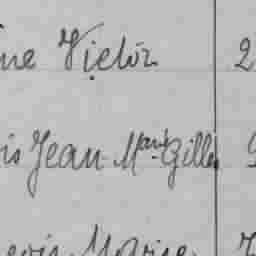 ne Victor 2
is Jean Marie Gilles
Marie